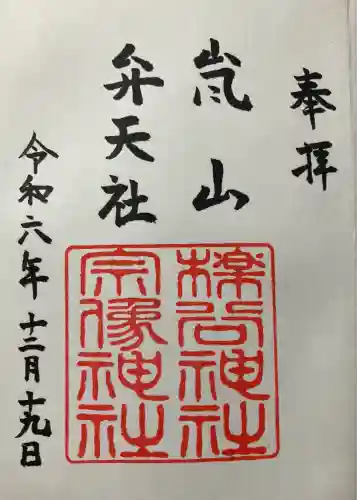 奉拝
嵐山
弁天社
令和六年十二月十九日
櫟谷神社
宗像神社